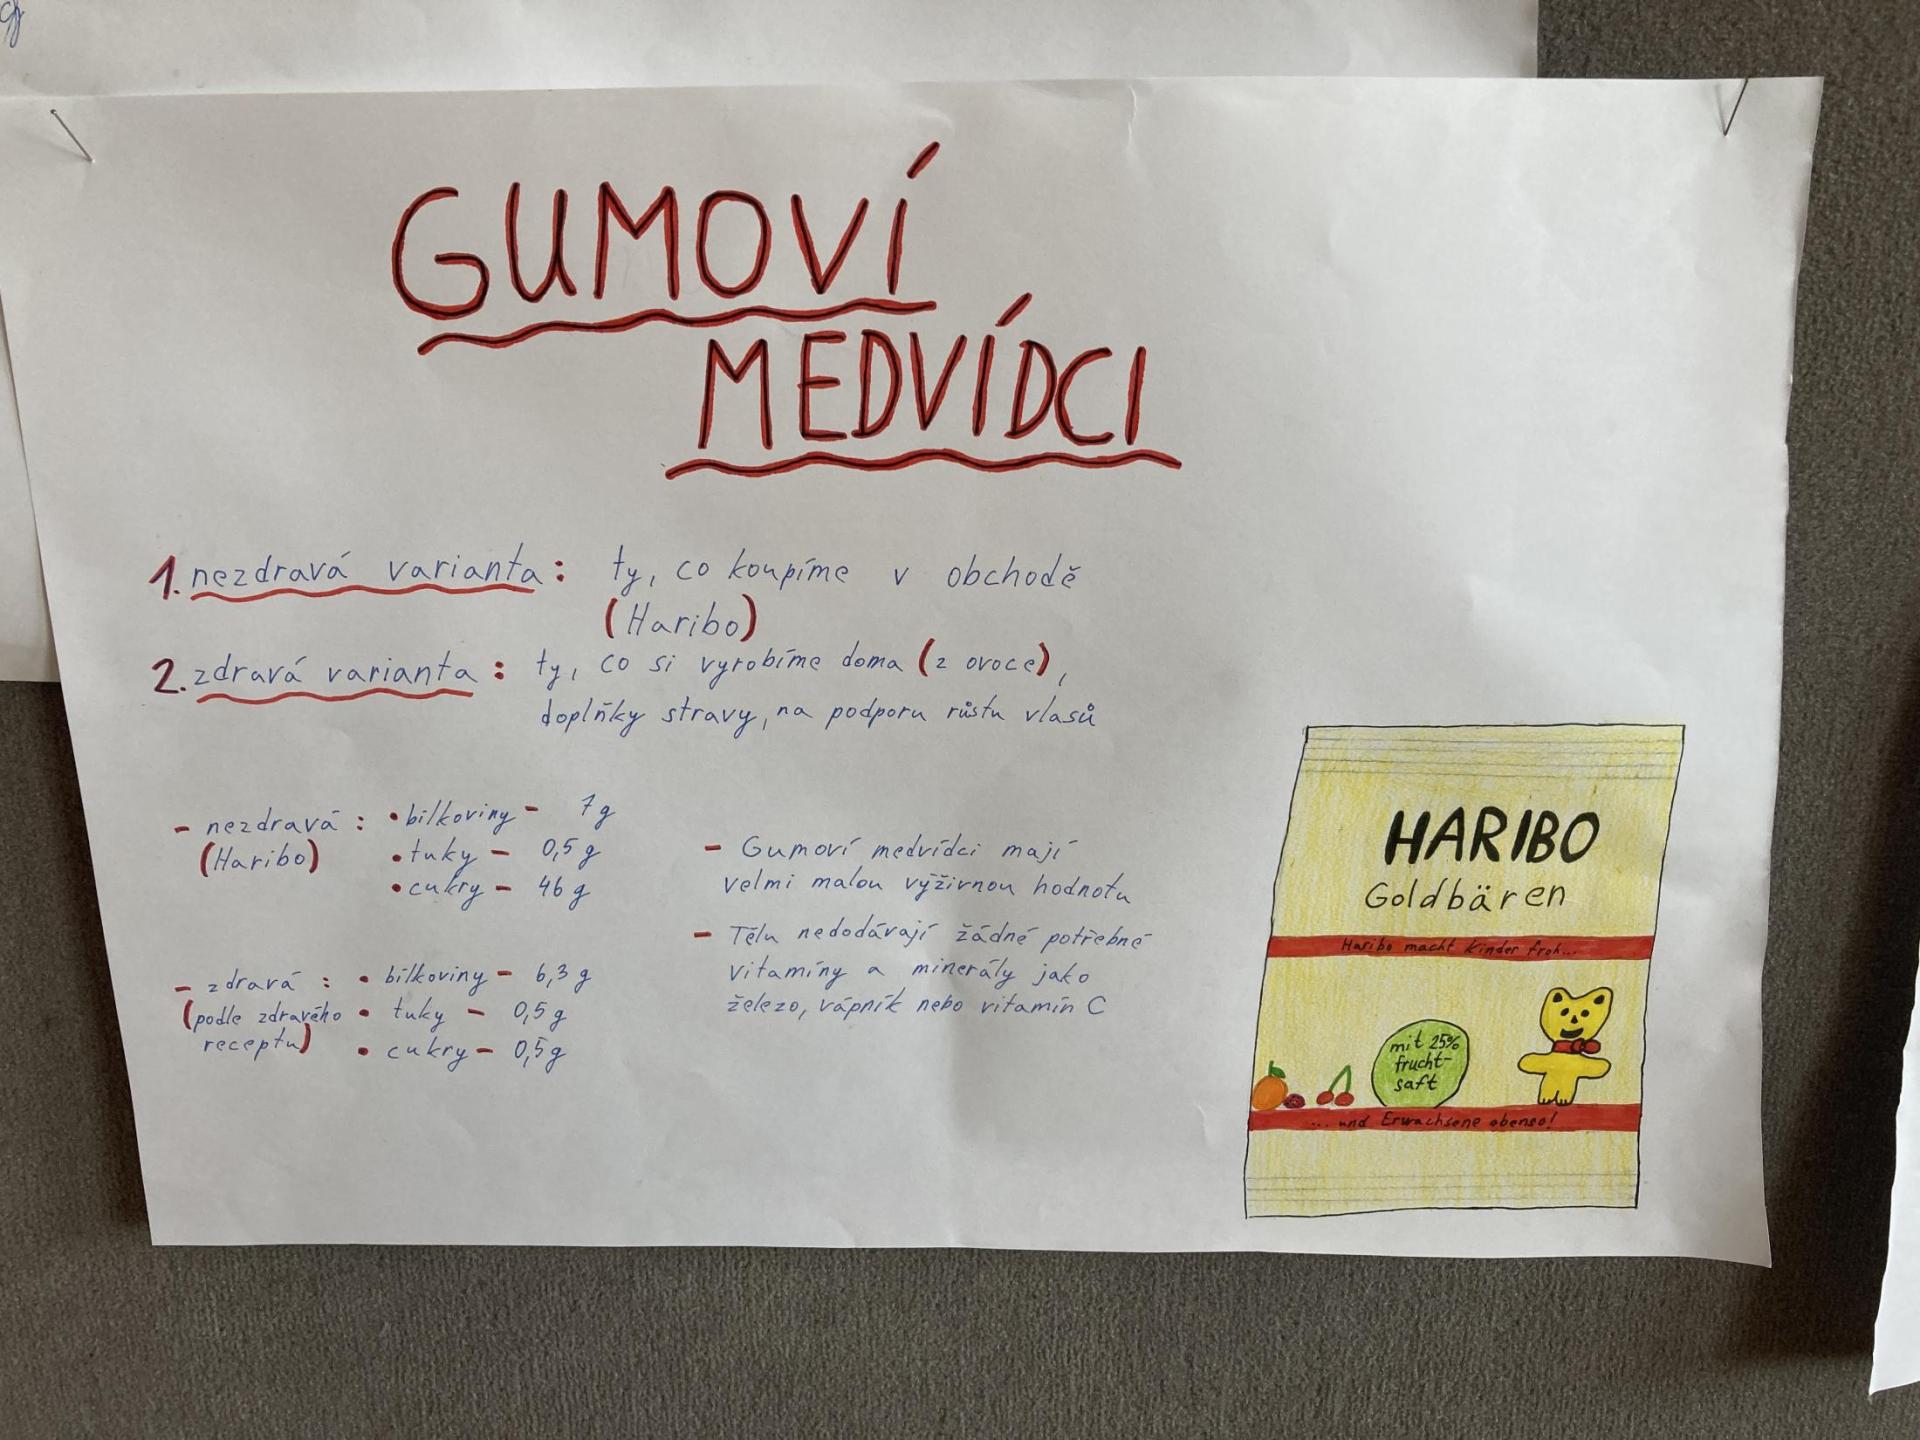 GUMOVÍ
MEDVÍDCI
1. nezdravá varianta: ty, co koupíme v obchodě
(Haribo)
2. zdravá varianta: ty, co si vyrobíme doma (z ovoce),
doplňky stravy, na podporu růstu vlasů
- nezdravá: • bílkoviny - 7g
(Haribo) • tuky - 0,5g
• cukry - 46g
- zdravá: • bílkoviny - 6,3g
(podle zdravého • tuky - 0,5g
receptu) • cukry - 0,5g
- Gumoví medvídci mají
velmi malou výživnou hodnotu
- Tělu nedodávají žádné potřebné
vitamíny a minerály jako
železo, vápník nebo vitamín C
HARIBO
Goldbären
Haribo macht Kinder froh...
mit 25%
frucht-
saft
... und Erwachsene obenso!